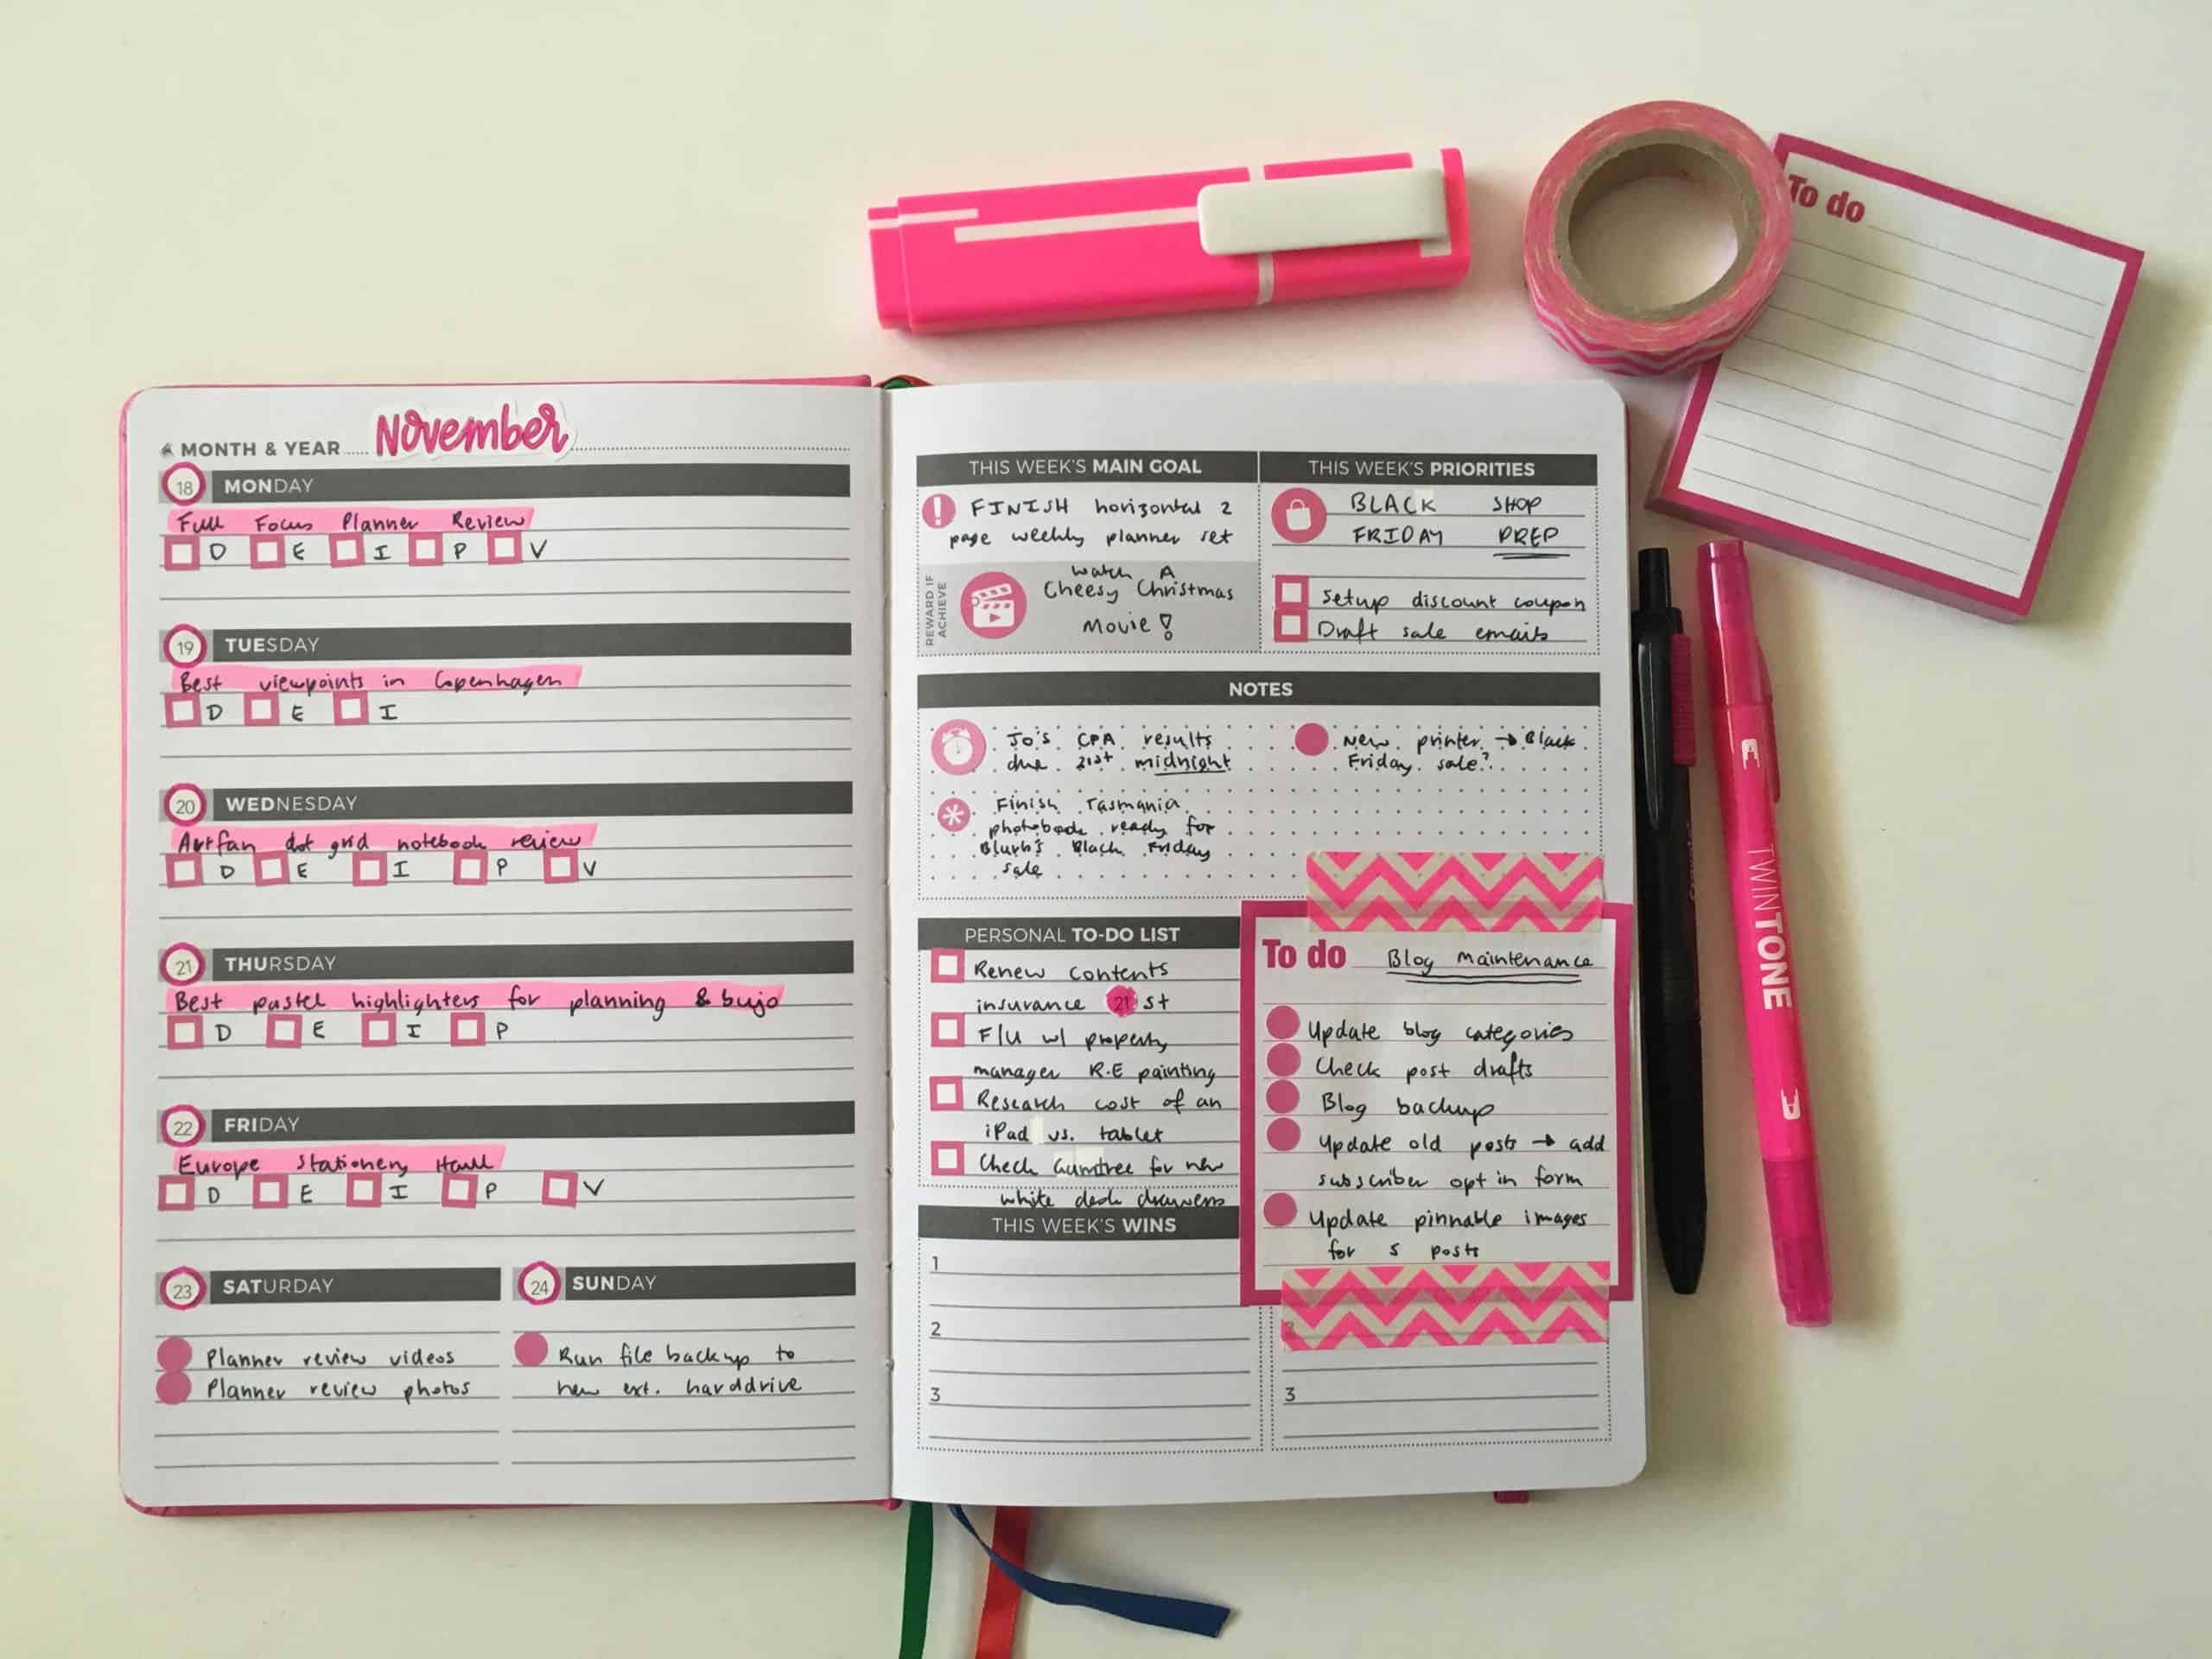 MONTH & YEAR November
18 MONDAY
Full Focus Planner Review
D E I P V
19 TUESDAY
Best viewpoints in Copenhagen
D E I
20 WEDNESDAY
Artfan dot grid notebook review
D E I P V
21 THURSDAY
Best pastel highlighters for planning & bujo
D E I P
22 FRIDAY
Europe Stationery Haul
D E I P V
23 SATURDAY
Planner review videos
Planner review photos
24 SUNDAY
Run file backup to
new ext. harddrive
THIS WEEK'S MAIN GOAL
! FINISH horizontal 2
page weekly planner set
REWARD IF
ACHIEVE
Watch A
Cheesy Christmas
Movie!
THIS WEEK'S PRIORITIES
BLACK SHOP
FRIDAY PREP
Setup discount coupon
Draft sale emails
NOTES
Jo's CPA results
due 21st midnight
* Finish Tasmania
photobook ready for
Blurb's Black Friday
sale
New printer → Black
Friday sale?
PERSONAL TO-DO LIST
Renew contents
insurance 21st
F/U w/ property
manager R.E painting
Research cost of an
iPad vs. tablet
Check Gumtree for new
white desk drawers
To do Blog Maintenance
Update blog categories
Check post drafts
Blog backup
Update old posts → add
subscriber opt in form
Update pinnable images
for 5 posts
THIS WEEK'S WINS
1
2
3
2
3
To do
TWINTONE